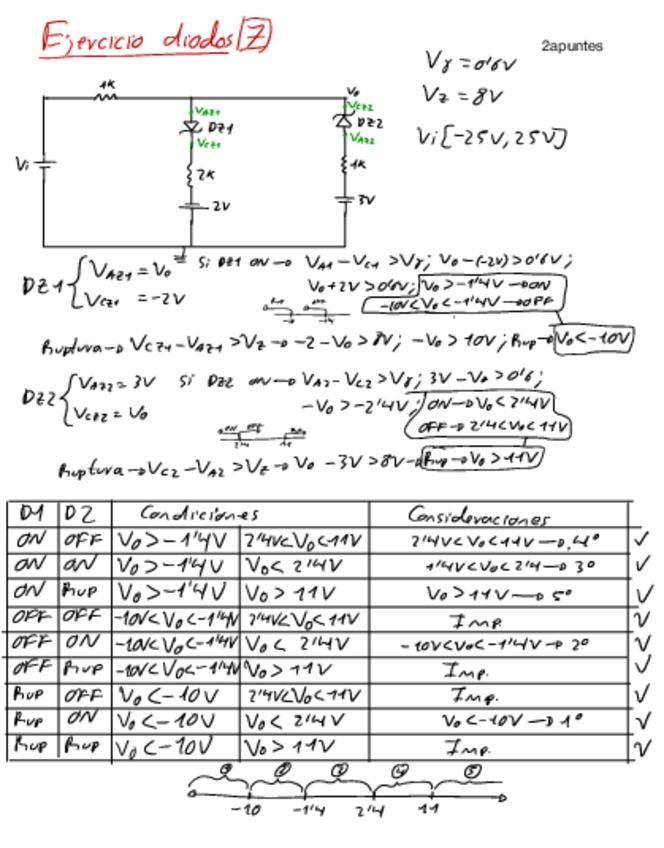 Ejercicio diodos (Z)
2apuntes
Vγ = 0'6V
Vz = 8V
Vi [-25V, 25V]
1K
V0
VAZ1
DZ1
VCZ1
VCZ2
DZ2
VAZ2
Vi
2K
1K
2V
3V
DZ1 { VAZ1 = V0
VCZ1 = -2V
Si DZ1 ON → VA1 - VC1 > Vγ; V0 - (-2V) > 0'6V;
V0 + 2V > 0'6V; V0 > -1'4V → ON
-10V < V0 < -1'4V → OFF
Ruptura → VCZ1 - VAZ1 > VZ → -2 - V0 > 8V; -V0 > 10V; Rup → V0 < -10V
DZ2 { VAZ2 = 3V
VCZ2 = V0
Si DZ2 ON → VA2 - VC2 > Vγ; 3V - V0 > 0'6;
-V0 > -2'4V; ON → V0 < 2'4V
OFF → 2'4 < V0 < 11V
ON OFF Rup
2'4 11
Ruptura → VC2 - VA2 > VZ → V0 - 3V > 8V → Rup → V0 > 11V
D1 D2 Condiciones Consideraciones
ON OFF V0 > -1'4V 2'4V < V0 < 11V 2'4V < V0 < 11V → 4º ✓
ON ON V0 > -1'4V V0 < 2'4V 1'4V < V0 < 2'4 → 3º ✓
ON Rup V0 > -1'4V V0 > 11V V0 > 11V → 5º ✓
OFF OFF -10V < V0 < -1'4V 2'4V < V0 < 11V Imp. ✓
OFF ON -10V < V0 < -1'4V V0 < 2'4V -10V < V0 < -1'4V → 2º ✓
OFF Rup -10V < V0 < -1'4V V0 > 11V Imp. ✓
Rup OFF V0 < -10V 2'4V < V0 < 11V Imp. ✓
Rup ON V0 < -10V V0 < 2'4V V0 < -10V → 1º ✓
Rup Rup V0 < -10V V0 > 11V Imp. ✓
① ② ③ ④ ⑤
-10 -1'4 2'4 11